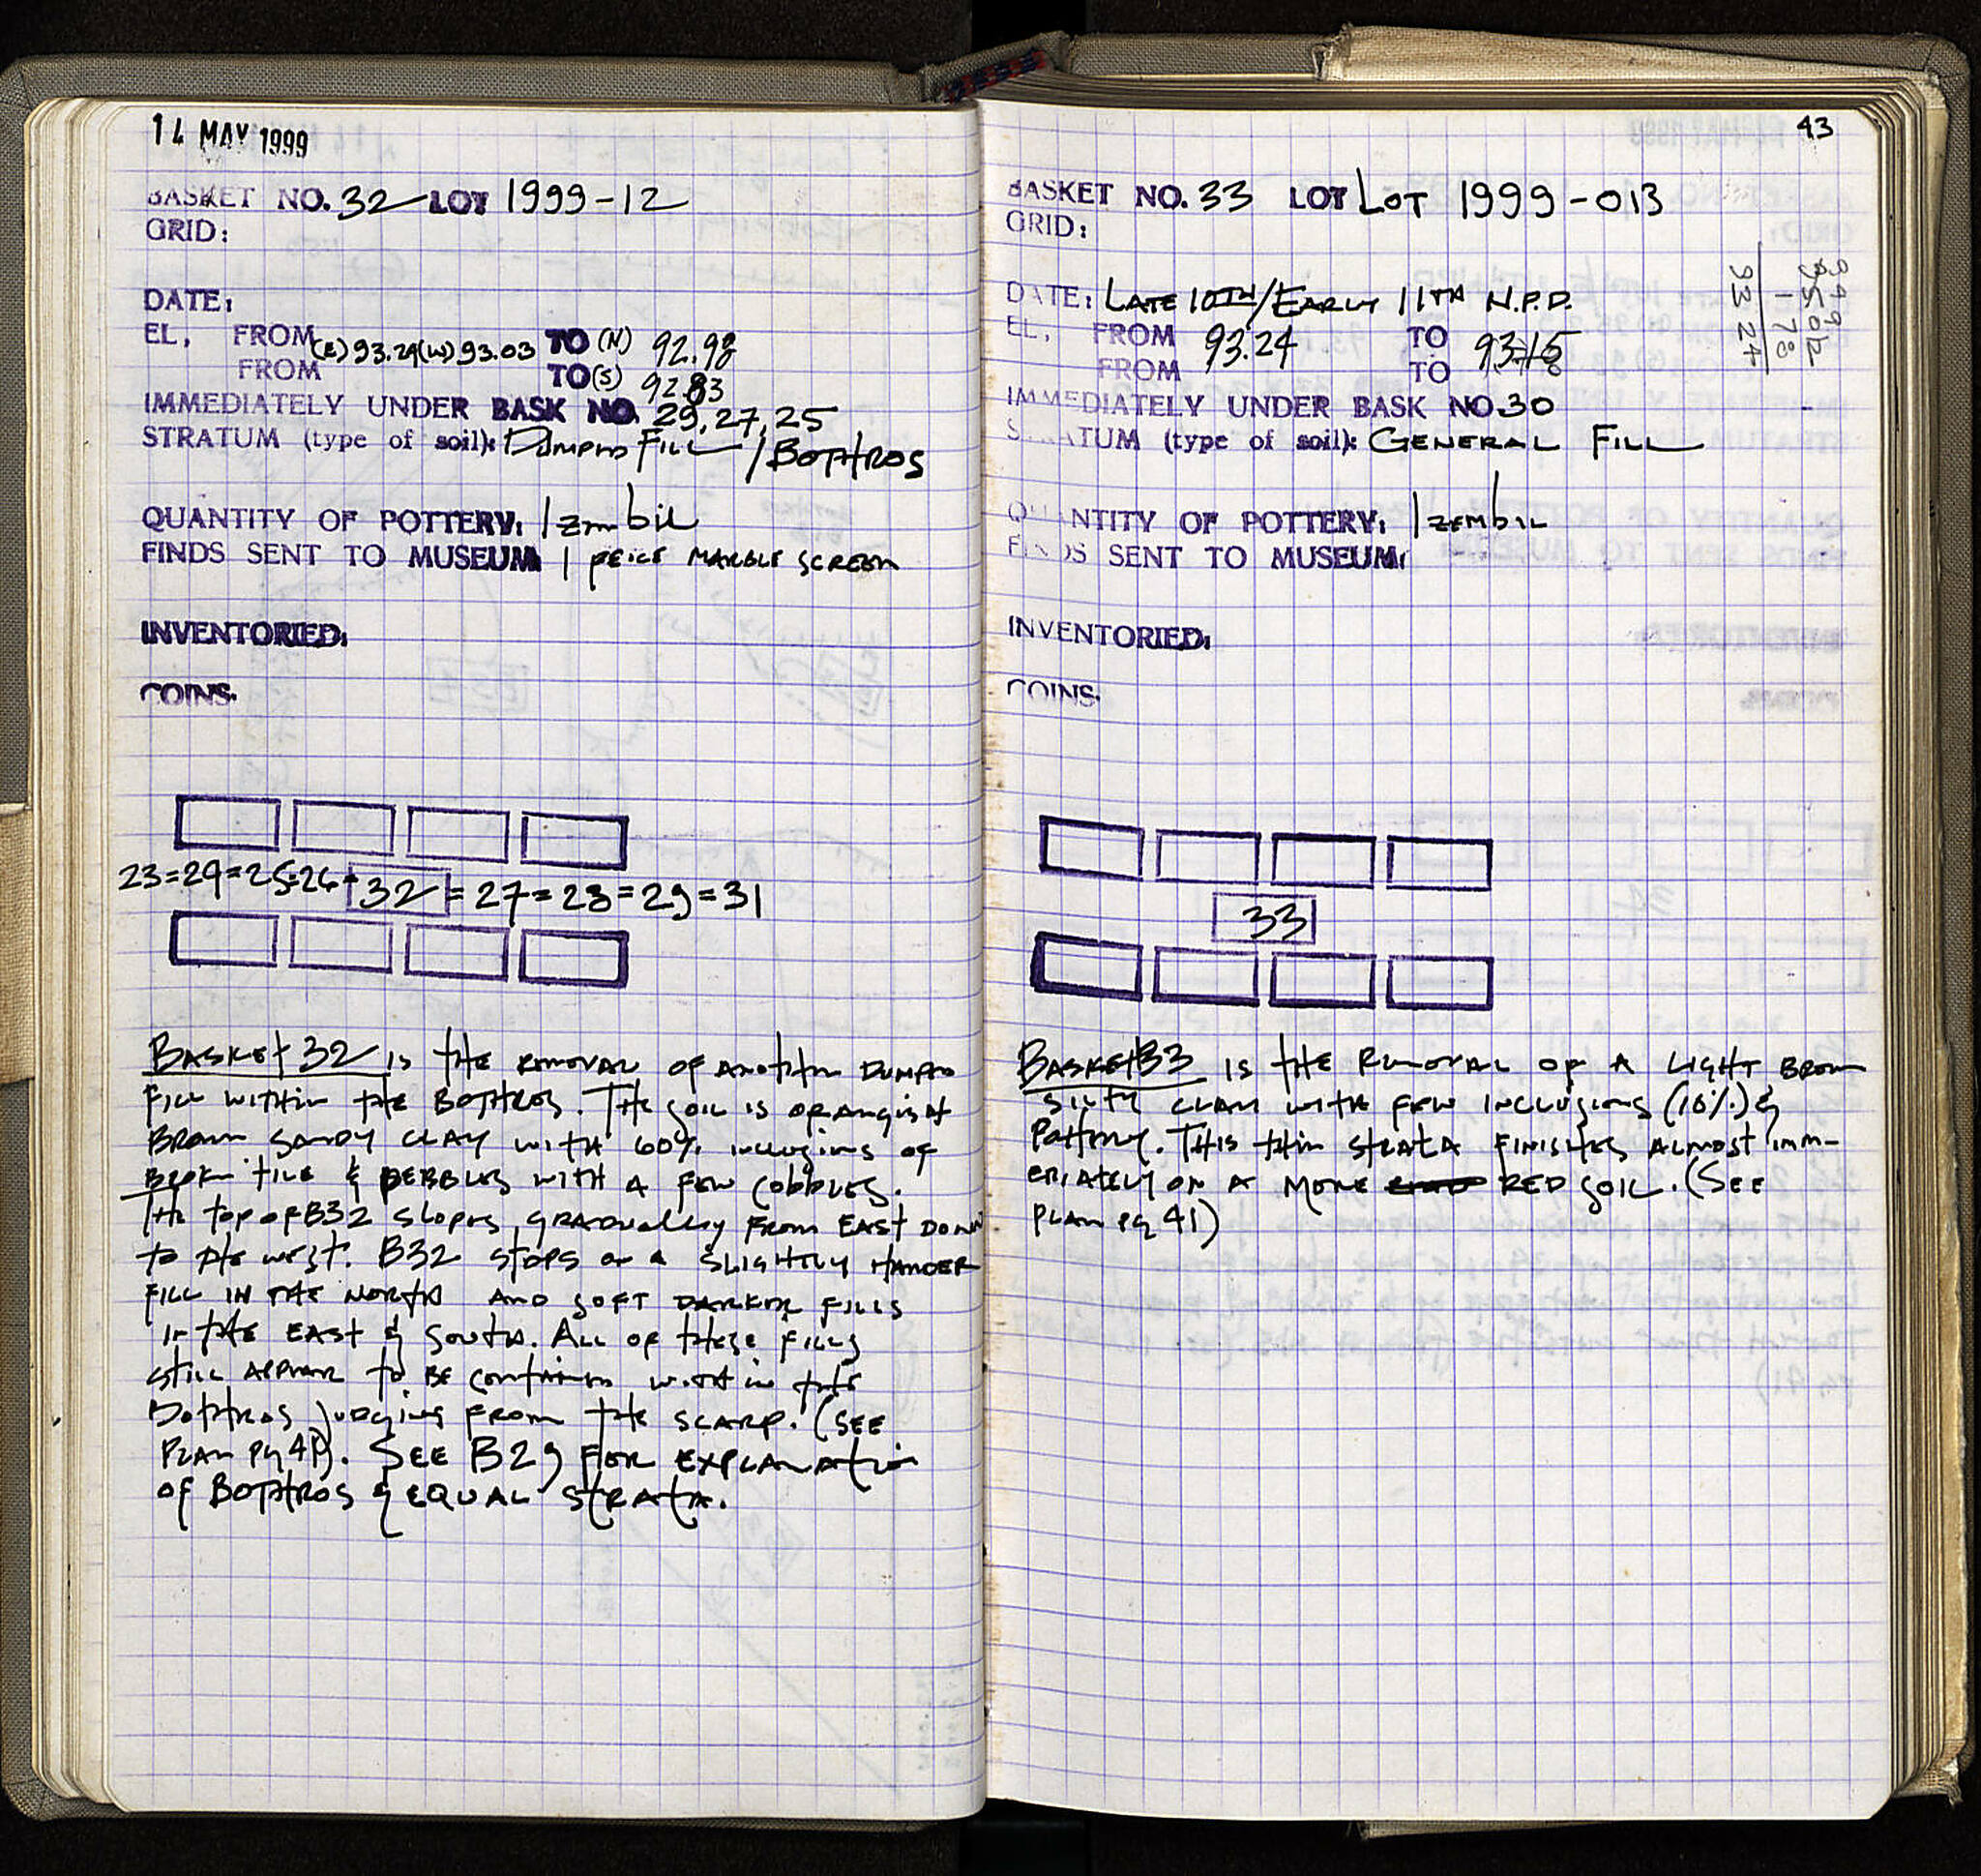 14 MAY 1999
BASKET NO. 32 LOT 1999-12
GRID:
DATE:
EL, FROM (E) 93.29 (W) 93.03 TO (N) 92.98
FROM TO (S) 92.83
IMMEDIATELY UNDER BASK NO. 29, 27, 25
STRATUM (type of soil): DUMPED FILL / BOTHROS
QUANTITY OF POTTERY: 1 zembil
FINDS SENT TO MUSEUM 1 PEICE MARBLE SCREEN
INVENTORIED:
COINS.
32 = 27 = 28 = 29 = 31
BASKET 32 IS THE REMOVAL OF ANOTHER DUMPED
FILL WITHIN THE BOTHROS. THE SOIL IS ORANGISH
BROWN SANDY CLAY WITH 60% INCLUSIONS OF
BROKEN TILE & PEBBLES WITH A FEW COBBLES.
THE TOP OF B32 SLOPES GRADUALLY FROM EAST DOWN
TO THE WEST. B32 STOPS ON A SLIGHTLY HARDER
FILL IN THE NORTH AND SOFT DARKER FILLS
IN THE EAST & SOUTH. ALL OF THESE FILLS
STILL APPEAR TO BE CONTAINED WITHIN THE
BOTHROS JUDGING FROM THE SCARP. (SEE
PLAN PG 41). SEE B29 FOR EXPLANATION
OF BOTHROS & EQUAL STRATA.
43
BASKET NO. 33 LOT LOT 1999-013
GRID:
DATE: LATE 10TH/EARLY 11TH N.P.D.
EL, FROM 93.24 TO
FROM TO
IMMEDIATELY UNDER BASK NO. 30
STRATUM (type of soil): GENERAL FILL
QUANTITY OF POTTERY: 1 ZEMBIL
FINDS SENT TO MUSEUM:
INVENTORIED:
COINS.
1 78
93 24
33
BASKET 33 IS THE REMOVAL OF A LIGHT BROWN
SILTY CLAY WITH FEW INCLUSIONS (10%) &
POTTERY. THIS THIN STRATA FINISHES ALMOST IMM-
EDIATELY ON A MORE RED SOIL. (SEE
PLAN PG 41)